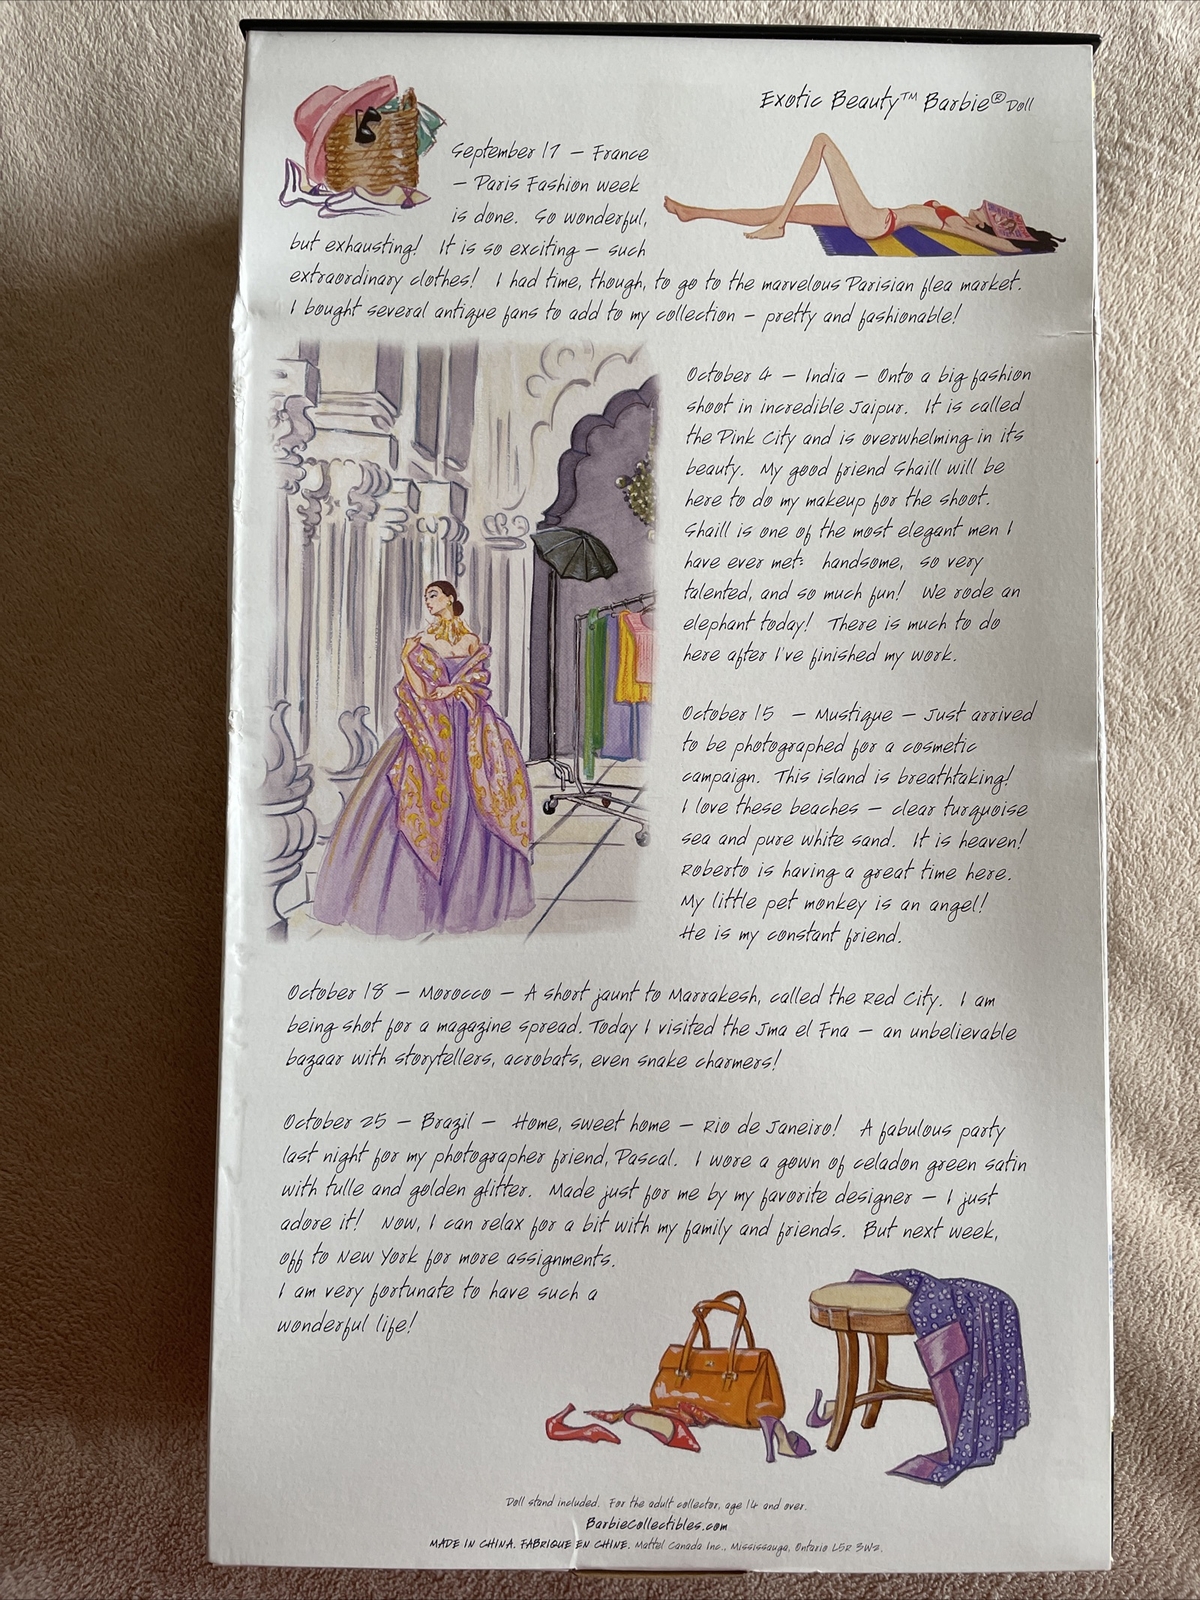 Exotic Beauty™ Barbie® Doll
September 17 – France
– Paris Fashion week
is done. So wonderful,
but exhausting! It is so exciting – such
extraordinary clothes! I had time, though, to go to the marvelous Parisian flea market.
I bought several antique fans to add to my collection – pretty and fashionable!
October 4 – India – Onto a big fashion
shoot in incredible Jaipur. It is called
the Pink City and is overwhelming in its
beauty. My good friend Shaill will be
here to do my makeup for the shoot.
Shaill is one of the most elegant men I
have ever met: handsome, so very
talented, and so much fun! We rode an
elephant today! There is much to do
here after I've finished my work.
October 15 – Mustique – Just arrived
to be photographed for a cosmetic
campaign. This island is breathtaking!
I love these beaches – clear turquoise
sea and pure white sand. It is heaven!
Roberto is having a great time here.
My little pet monkey is an angel!
He is my constant friend.
October 18 – Morocco – A short jaunt to Marrakesh, called the Red City. I am
being shot for a magazine spread. Today I visited the Jma el Fna – an unbelievable
bazaar with storytellers, acrobats, even snake charmers!
October 25 – Brazil – Home, sweet home – Rio de Janeiro! A fabulous party
last night for my photographer friend, Pascal. I wore a gown of celadon green satin
with tulle and golden glitter. Made just for me by my favorite designer – I just
adore it! Now, I can relax for a bit with my family and friends. But next week,
off to New York for more assignments.
I am very fortunate to have such a
wonderful life!
Doll stand included. For the adult collector, age 14 and over.
BarbieCollectibles.com
MADE IN CHINA. FABRIQUE EN CHINE. Mattel Canada Inc., Mississauga, Ontario L5R 3W2.